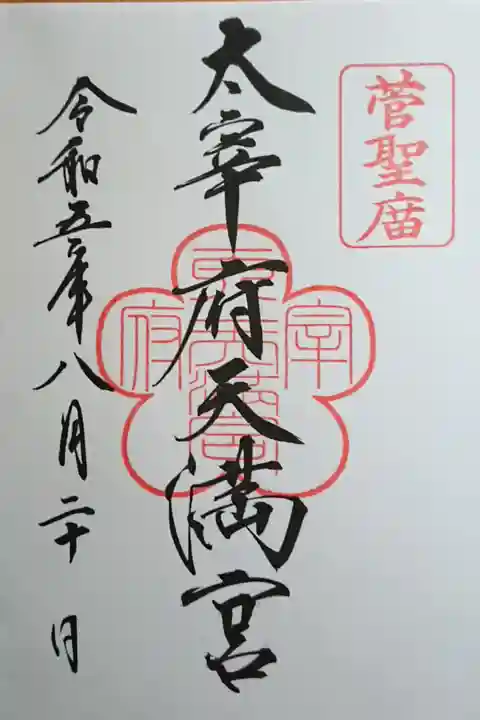 菅聖庿
太宰府天満宮
令和五年八月二十日